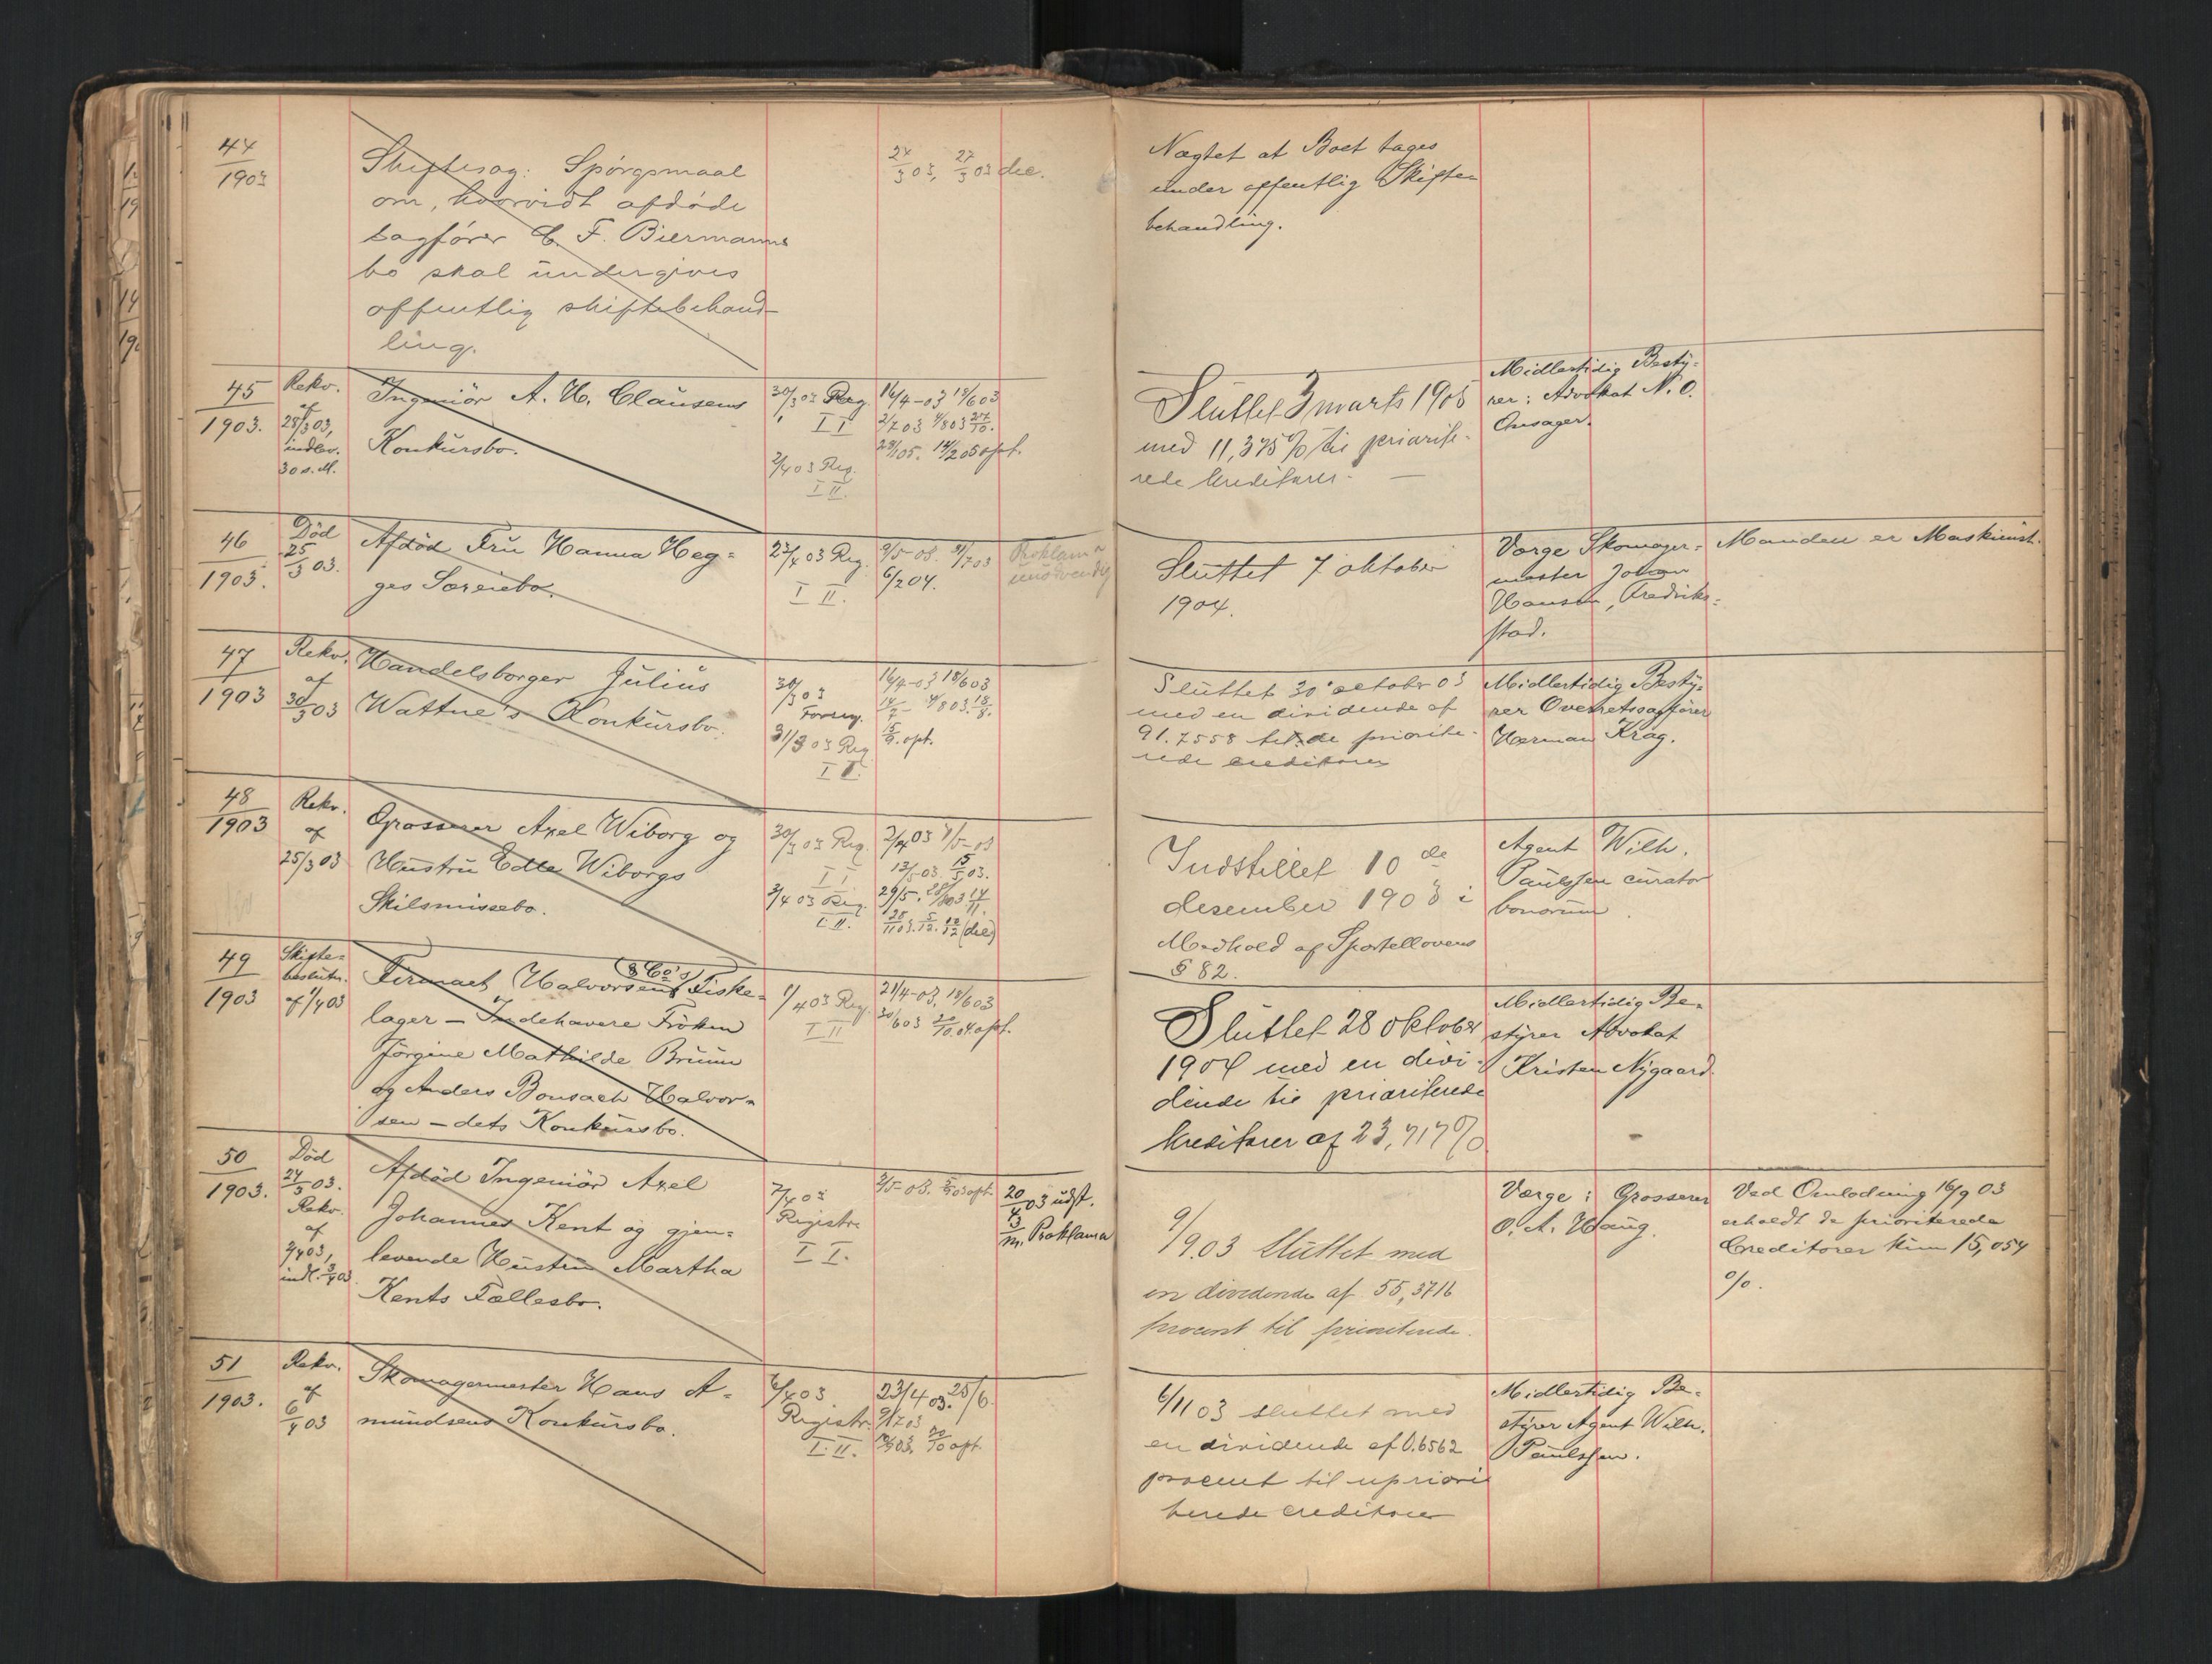 44
1903
Skiftesag: Spörgsmaal
om, hvorvidt afdöde
sagförer C. F. Biermanns
bo skal undergives
offentlig skiftebehand-
ling.
27/3 03, dec.
Nægtet at Boet tages
under offentlig Skifte
behandling.
45
1903.
Rekv.
af
28/3 03,
indlev.
30 s. M.
Ingeniör A. H. Clausens
Konkursbo.
30/3 03 Reg.
I I
2/4 03 Reg.
I II.
16/4-03 18/6 03
14/2 05 opt.
Sluttet 3 marts 1905
med 11,375% til priorite-
rede kreditorer.
Midlertidig Besty-
rer: Advokat N. O.
Ansager.
46
1903.
Död
25/3 03.
Afdöd Fru Hanna Heg-
ges Særeiebo.
23/4 03 Reg.
I II.
6/2 04.
Proklama
unödvendig
Sluttet 7 oktober
1904.
Værge Skomager-
mester Johan
Hansen, Fredrik-
stad.
Manden er Maskinist.
47
1903
Rekv.
af
30/3 03
Handelsborger Julius
Wattne's Konkursbo.
30/3 03
31/3 03 Reg.
I II.
16/4-03 18/6 03
opt.
Sluttet 30 october 03
med en dividende af
91.7558 til de priorite-
rede creditorer
Midlertidig Besty-
rer Overretssagförer
Herman Krag.
48
1903
Rekv.
af
25/3 03
Grosserer Axel Wiborg og
Hustru Edle Wiborgs
Skilsmissebo.
30/3 03 Reg.
I I
2/4 03 Reg.
I II.
Indstillet 10de
desember 1903 i
Medhold af Sportellovens
§ 82.
Agent Wilh.
Paulssen curator
bonorum.
49
1903
Skifte-
beslutn.
af 1/4 03
Firmaet Halvorsens & Co's Fiske-
lager – Indehavere Fröken
Jörgine Mathilde Bruun
og Anders Bonsach Halvor-
sen – dets Konkursbo.
1/4 03 Reg.
I II
21/4-03. 18/6 03
30/6 03 opt.
Sluttet 28 oktober
1904 med en divi-
dende til prioriterede
kreditorer af 23,717%
Midlertidig Be-
styrer Advokat
Kristen Nygaard.
50
1903.
Död
24/3 03.
Rekv.
af
indl. 3/4 03.
Afdöd Ingeniör Axel
Johannes Kent og gjen-
levende Hustru Martha
Kents Fællesbo.
Registr.
I I.
20/4 03 udst.
Proklama
9/9.03 sluttet med
en dividende af 55,3716
procent til prioriterede.
Værge: Grosserer
O. A. Haug.
Ved Omlodning 16/9 03
erholdt de prioriterede
Creditorer kun 15,054
%.
51
1903.
Rekv.
af
6/4 03
Skomagermester Hans A-
mundsens Konkursbo.
6/4 03
Registr.
I. II.
23/4 03. 25/6
20/10 opt.
6/11 03 sluttet med
en dividende af 0.6562
procent til upriori
terede creditorer
Midlertidig Be-
styrer Agent Wilh.
Paulssen.